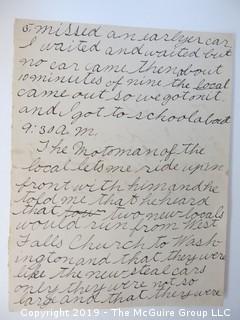 5 missed an earlyer car
I waited and waited but
no car came then about
10 minutes of nine the local
came out so we got on it
and I got to school about
9:30 a.m.
The Motoman of the
local lets me ride up in
front with him and he
told me that he heard
that two new locals
would run from West
Falls Church to Wash-
ington and that they were
like the new steal cars
only they were not so
large and that they were
Copyright 2019 - The McGuire Group LLC